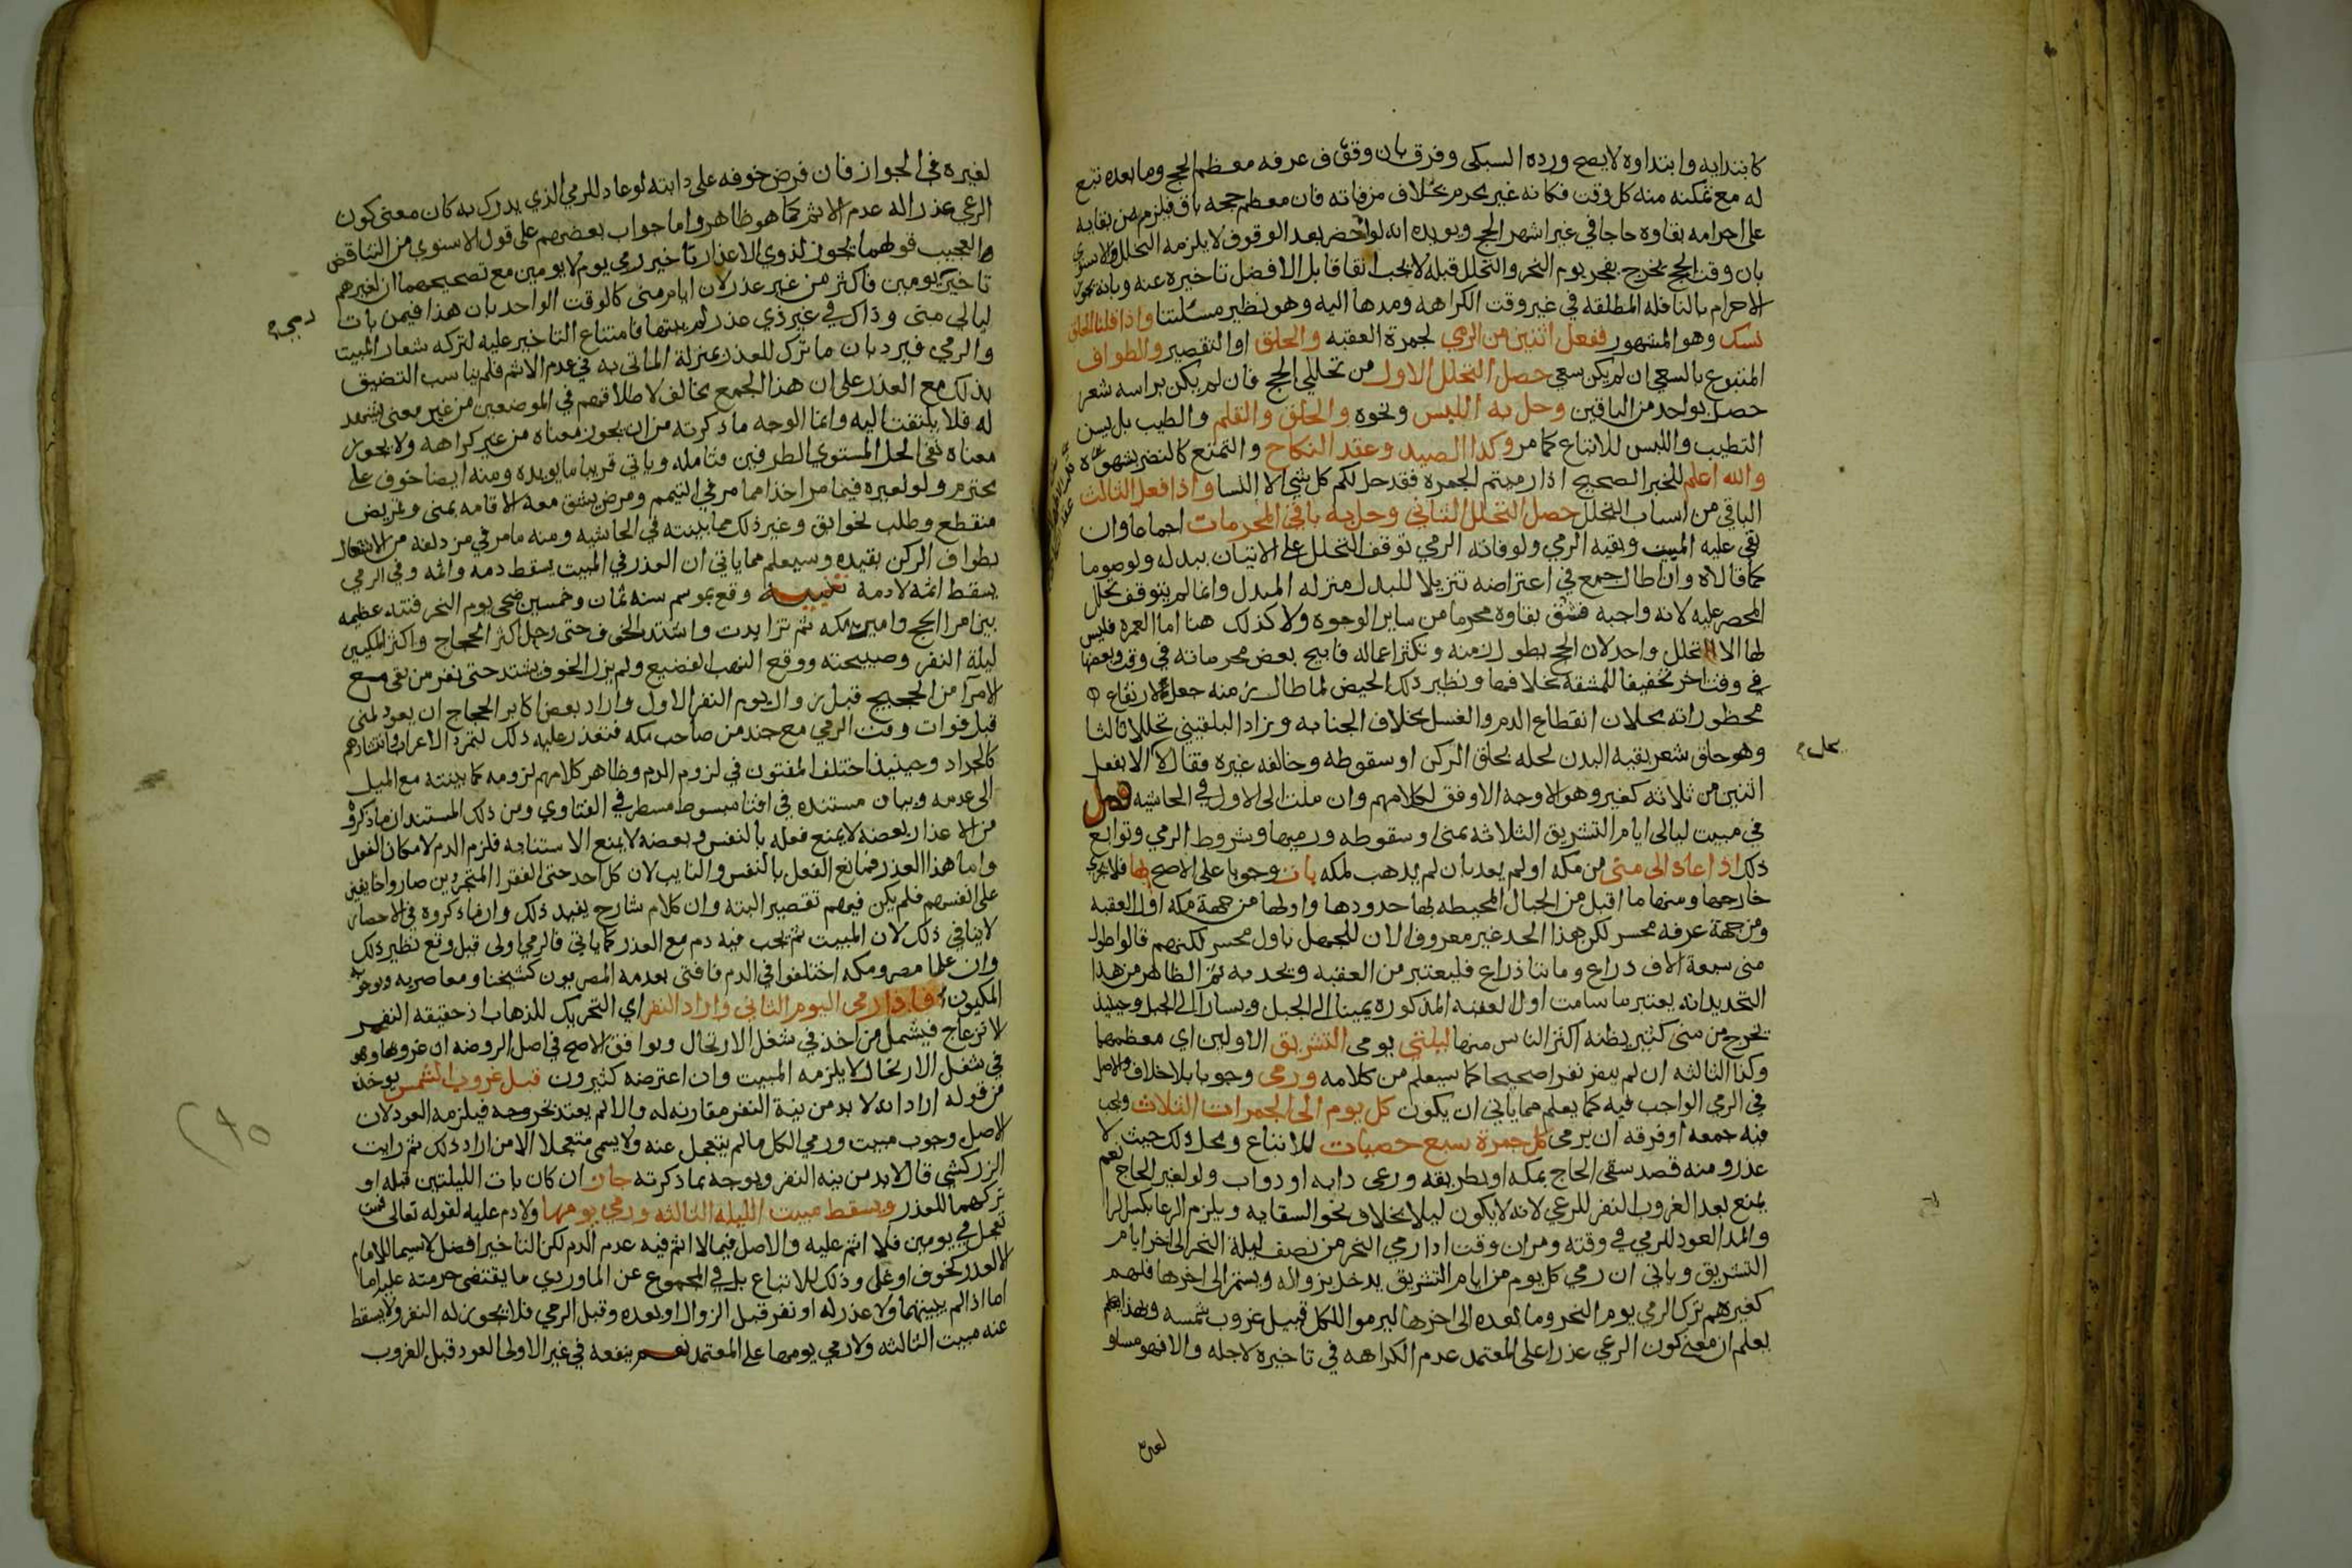 كابتدايه وابتداوه لايصح ورده السبكى وفرق بان وقوف عرفه معظم الحج وما بعده تبع
له مع تمكنه منه كل وقت فكانه غير محرم بخلاف من فاته فان معظم حجه باق فيلزم من بقايه
على احرامه بقاوه حاجا في غير اشهر الحج ويويده انه لو احضر بعد الوقوف لايلزمه التحلل والاسنوي
بان وقت الحج يخرج بفجر يوم النحر والتحلل قبله لايجب اتفاقا بل الافضل تاخيره عنه وبانه يجوز
الاحرام بالنافله المطلقه في غير وقت الكراهه ومدها اليه وهو نظير مسئلتنا واذا قلنا الحلق
نسك وهو المشهور ففعل اثنين من الرمي لجمرة العقبه والحلق او التقصير والطواف
المتبوع بالسعي ان لم يكن سعي حصل التحلل الاول من تحللي الحج فان لم يكن براسه شعر
حصل بواحد من الباقين وحل به اللبس ونحوه والحلق والقلم والطيب بل يسن
التطيب واللبس للاتباع كما مر وكذا الصيد وعقد النكاح والتمتع كالنظر بشهوه
والله اعلم للخبر الصحيح اذا رميتم الجمرة فقد حل لكم كل شي الا النسا واذا فعل الثالث
الباقي من اسباب التحلل حصل التحلل الثاني وحل به باقي المحرمات اجماعا وان
بقي عليه المبيت وبقيه الرمي ولو فاته الرمي توقف التحلل على الاتيان ببدله ولو صوما
كما قالاه وان اطال جمع في اعتراضه تنزيلا للبدل منزله المبدل وانما لم يتوقف تحلل
المحصر عليه لانه واجبه فشق بقاوه محرما من ساير الوجوه ولا كذلك هنا اما العمرة فليس
لها الا تحلل واحد لان الحج يطول زمنه وتكثر اعماله فابيح بعض محرماته في وقت وبعضها
في وقت اخر تخفيفا للمشقه بخلافها ونظير ذلك الحيض لما طال زمنه جعل لارتفاع
محظوراته محلان انقطاع الدم والغسل بخلاف الجنابه وزاد البلقيني تحللا ثالثا
وهو حلق شعر بقيه البدن لحله بحلق الركن او سقوطه وخالفه غيره فقال لا الا بفعل
اثنين من ثلاثه كغيره وهو الاوجه الاوفق لكلامهم وان ملت الى الاول في الحاشيه فصل
في مبيت ليالى ايام التشريق الثلاثه بمنى او سقوطه ورميها وشروط الرمي وتوابع
ذلك اذا عاد الى منى من مكه او لم يعد بان لم يذهب لمكه بات وجوبا على الاصح بها فلا يجزي
خارجها ومنها ما اقبل من الجبال المحيطه بها حدودها واولها من جهة مكه اول العقبه
ومن جهة عرفه محسر لكن هذا الحد غير معروف الان للجهل باول محسر لكنهم قالوا طول
منى سبعة الاف ذراع وماىتا ذراع فليعتبر من العقبه ويحد به ثم الظاهر من هذا
التحديد انه يعتبر ما سامت اول العقبه المذكوره يمينا الى الجبل ويسارا الى الجبل وحينيذ
يخرج من منى كثير يظنه اكثر الناس منها ليلتي يومى التشريق الاولين اي معظمهما
وكذا الثالثه ان لم ينفر نفرا صحيحا كما سيعلم من كلامه ورمى وجوبا بلا خلاف والاصل
في الرمي الواجب فيه كما يعلم مما ياتي ان يكون كل يوم الى الجمرات الثلاث ويجب
فيه جمعه او فرقه ان يرمى كل جمرة سبع حصيات للاتباع ومحل ذلك حيث لا
عذر ومنه قصد سقى الحاج بمكه او بطريقه ورعى دابه او دواب ولو لغير الحاج نعم
يمتنع بعد الغروب النفر للرعي لانه لا يكون ليلا بخلاف نحو السقايه ويلزم الرعا بكسر الرا
والمد العود للرمي في وقته ومر ان وقت ادا رمي النحر من نصف ليلة النحر الى اخر ايام
التشريق وياتي ان رمي كل يوم من ايام التشريق يدخل بزواله ويستمر الى اخرها فلهم
كغيرهم ترك الرمي يوم النحر وما بعده الى اخرها ليرموا الكل قبيل غروب شمسه وبهذا يعلم
يعلم ان معنى كون الرعي عذرا على المعتمد عدم الكراهه في تاخيره لاجله والا فهو مساو
يحل
لغيره
لغيره في الجواز فان فرض خوفه على دابته لو عاد للرمي الذي يدرك به كان معنى كون
الرعي عذرا له عدم الاثم كما هو ظاهر واما جواب بعضهم على قول الاسنوي من التناقض
العجيب قولهما يجوز لذوي الاعذار تاخير رمي يوم لا يومين مع تصحيحهما ان لغيرهم
تاخير يومين فاكثر من غير عذر لان ايام منى كالوقت الواحد بان هذا فيمن بات
ليالى منى وذاك في غير ذي عذر لم يبتها فامتناع التاخير عليه لتركه شعار المبيت
والرمي فيرد بان ما ترك للعذر بمنزلة الماتى به في عدم الاثم فلم يناسب التضيق
بذلك مع العذر على ان هذا الجمع مخالف لاطلاقهم في الموضعين من غير معنى يشهد
له فلا يلتفت اليه وانما الوجه ما ذكرته من ان يجوز معناه من غير كراهه ولا يجوز
معناه نفى الحل المستوي الطرفين فتامله وياتي قريبا ما يويده ومنه ايضا خوف على
محترم ولو لغيره فيما مر اخذا مما مر في التيمم ومرض يشق معه الاقامه بمنى وتمريض
منقطع وطلب نحو ابق وغير ذلك مما بينته في الحاشيه ومنه ما مر في مزدلفه من الاشتغال
بطواف الركن بقيده وسيعلم مما ياتي ان العذر في المبيت يسقط دمه واثمه وفي الرمي
يسقط اثمه لا دمه تنبيه وقع بموسم سنه ثمان وخمسين ضحى يوم النحر فتنه عظيمه
بين امرا الحج وامير مكه ثم تزايدت واشتد الخوف حتى رحل اكثر الحجاج واكثر المكيين
ليلة النفر وصبيحته ووقع النهب الفضيع ولم يزل الخوف يشتد حتى نفر من بقى مع
الامرآ من الحجيج قبل زوال يوم النفر الاول واراد بعض اكابر الحجاج ان يعود لمنى
قبل فوات وقت الرمي مع جند من صاحب مكه فتعذر عليه ذلك لتمرد الاعراب وانتشارهم
كالجراد وحينيذ اختلف المفتون في لزوم الدم وظاهر كلامهم لزومه كما بينته مع الميل
الى عدمه وبيان مستنده في افتا مبسوط مسطر في الفتاوي ومن ذلك المستند ان ما ذكروه
من الاعذار بعضه لا يمنع فعله بالنفس وبعضه لا يمنع الاستنابه فلزم الدم لامكان الفعل
واما هذا العذر فمانع الفعل بالنفس والنايب لان كل احد حتى الفقرا المتجردين صاروا خايفين
على انفسهم فلم يكن فيهم تقصير البته وان كلام شارح يفيد ذلك وان ما ذكروه في الاحصار
لا ينافي ذلك لان المبيت ثم يجب فيه دم مع العذر كما ياتي فالرمي اولى قبل وقع نظير ذلك
وان علما مصر ومكه اختلفوا في الدم فافتى بعدمه المصريون كشيخنا ومعاصريه وبوجوبه
المكيون فاذا رمى اليوم الثاني واراد النفر اي التحرك للذهاب اذ حقيقه النفر
الانزعاج فيشمل من اخذ في شغل الارتحال ويوافق الاصح في اصل الروضه ان غروبها وهو
في شغل الارتحال لا يلزمه المبيت وان اعترضه كثيرون قبل غروب الشمس يوخذ
من قوله اراد انه لا بد من نية النفر مقارنه له والا لم يعتد بخروجه فيلزمه العود لان
الاصل وجوب مبيت ورمي الكل ما لم يتعجل عنه ولا يسمى متعجلا الا من اراد ذلك ثم رايت
الزركشي قال لا بد من نيه النفر ويوجه بما ذكرته جاز ان كان بات الليلتين قبله او
تركهما للعذر وسقط مبيت الليلة الثالثه ورمي يومها ولا دم عليه لقوله تعالى فمن
تعجل في يومين فلا اثم عليه والاصل فيما لا اثم فيه عدم الدم لكن التاخير افضل لاسيما للامام
الا لعذر كخوف او غلى وذلك للاتباع بل في المجموع عن الماوردي ما يقتضى حرمته عليه اما
اما اذا لم يبيتهما ولا عذر له او نفر قبل الزوال او بعده وقبل الرمي فلا يجوز له النفر ولا يسقط
عنه مبيت الثالثه ولا رمي يومها على المعتمد نعم ينفعه في غير الاولى العود قبل الغروب